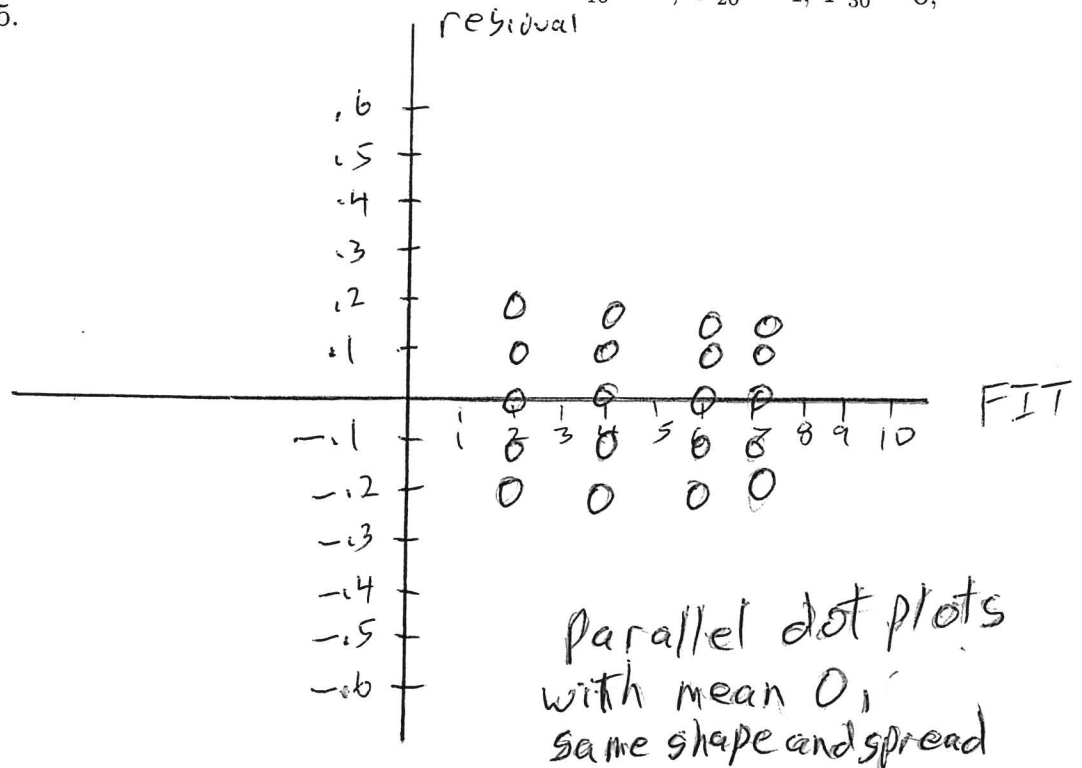 5.
residual
.6
.5
.4
.3
.2
.1
FIT
1 2 3 4 5 6 7 8 9 10
-.1
-.2
-.3
-.4
-.5
-.6
Parallel dot plots
with mean 0,
same shape and spread